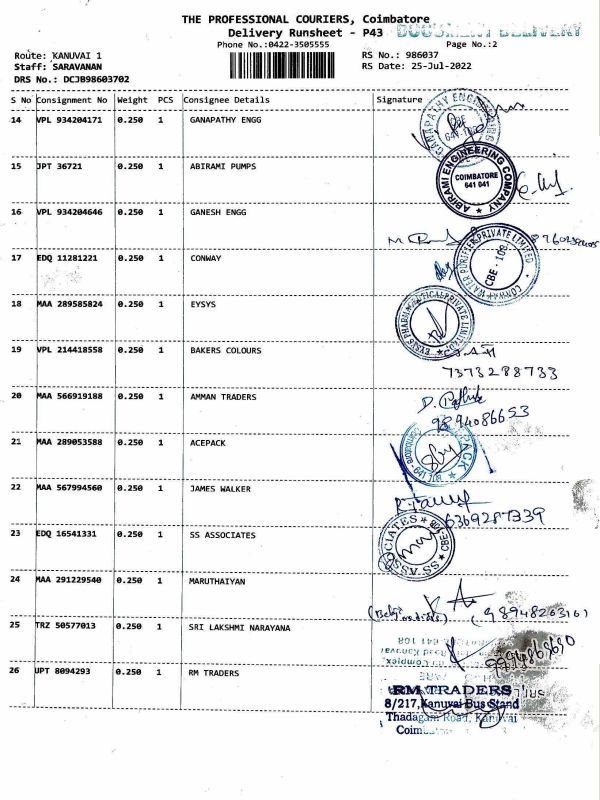 THE PROFESSIONAL COURIERS, Coimbatore
Delivery Runsheet - P43 DOCUMENT DELIVERY
Phone No.:0422-3505555 Page No.:2
Route: KANUVAI 1 RS No.: 986037
Staff: SARAVANAN RS Date: 25-Jul-2022
DRS No.: DCJB98603702
S No Consignment No Weight PCS Consignee Details Signature
14 VPL 934204171 0.250 1 GANAPATHY ENGG
GANAPATHY ENGINEERING
15 JPT 36721 0.250 1 ABIRAMI PUMPS
ABIRAMI ENGINEERING COMPANY
COIMBATORE
641 041
16 VPL 934204646 0.250 1 GANESH ENGG
17 EDQ 11281221 0.250 1 CONWAY
CONWAY WATER PURIFIER PRIVATE LIMITED
CBE - 108
18 MAA 289585824 0.250 1 EYSYS
EYSYS PHARMACEUTICAL PRIVATE LIMITED
19 VPL 214418558 0.250 1 BAKERS COLOURS
7373288733
20 MAA 566919188 0.250 1 AMMAN TRADERS
9894086653
21 MAA 289053588 0.250 1 ACEPACK
22 MAA 567994560 0.250 1 JAMES WALKER
23 EDQ 16541331 0.250 1 SS ASSOCIATES
SS ASSOCIATES
24 MAA 291229540 0.250 1 MARUTHAIYAN
25 TRZ 50577013 0.250 1 SRI LAKSHMI NARAYANA
26 UPT 8094293 0.250 1 RM TRADERS
RM TRADERS
8/217, Kanuvai Bus Stand
Thadagam Road, Kanuvai